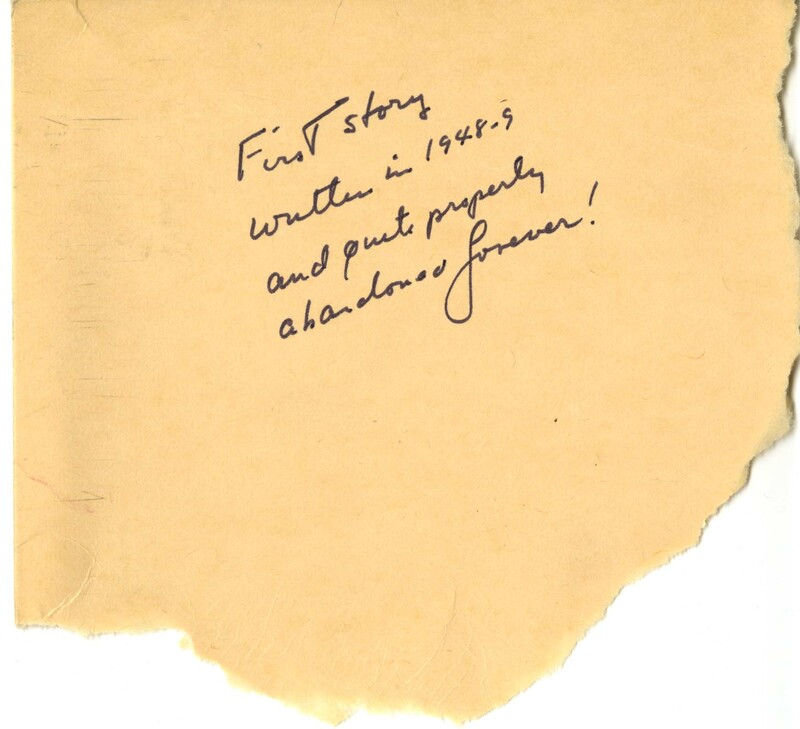 First story
written in 1948-9
and quite properly
abandoned forever!